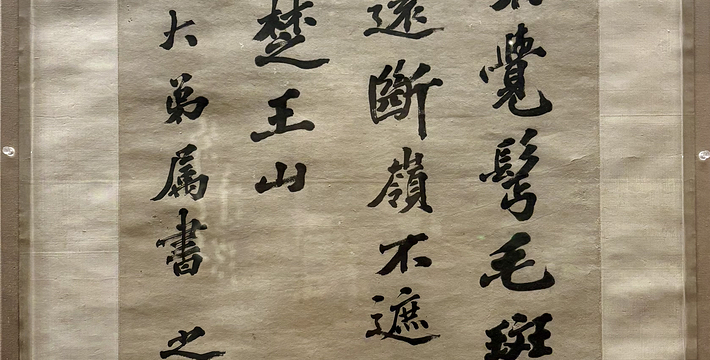 覺鬢毛斑
遠斷嶺不遮
楚王山
大弟属書 之